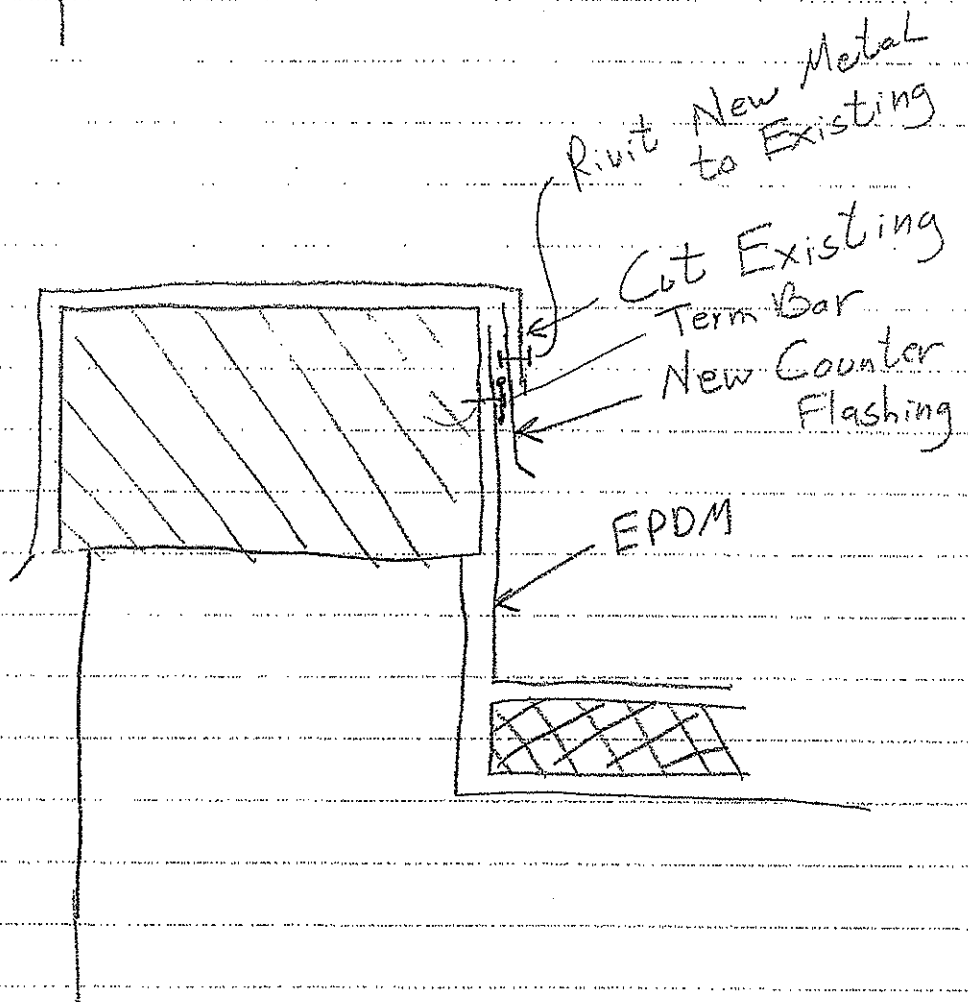 Rivit New Metal
to Existing
Cut Existing
Term Bar
New Counter
Flashing
EPDM